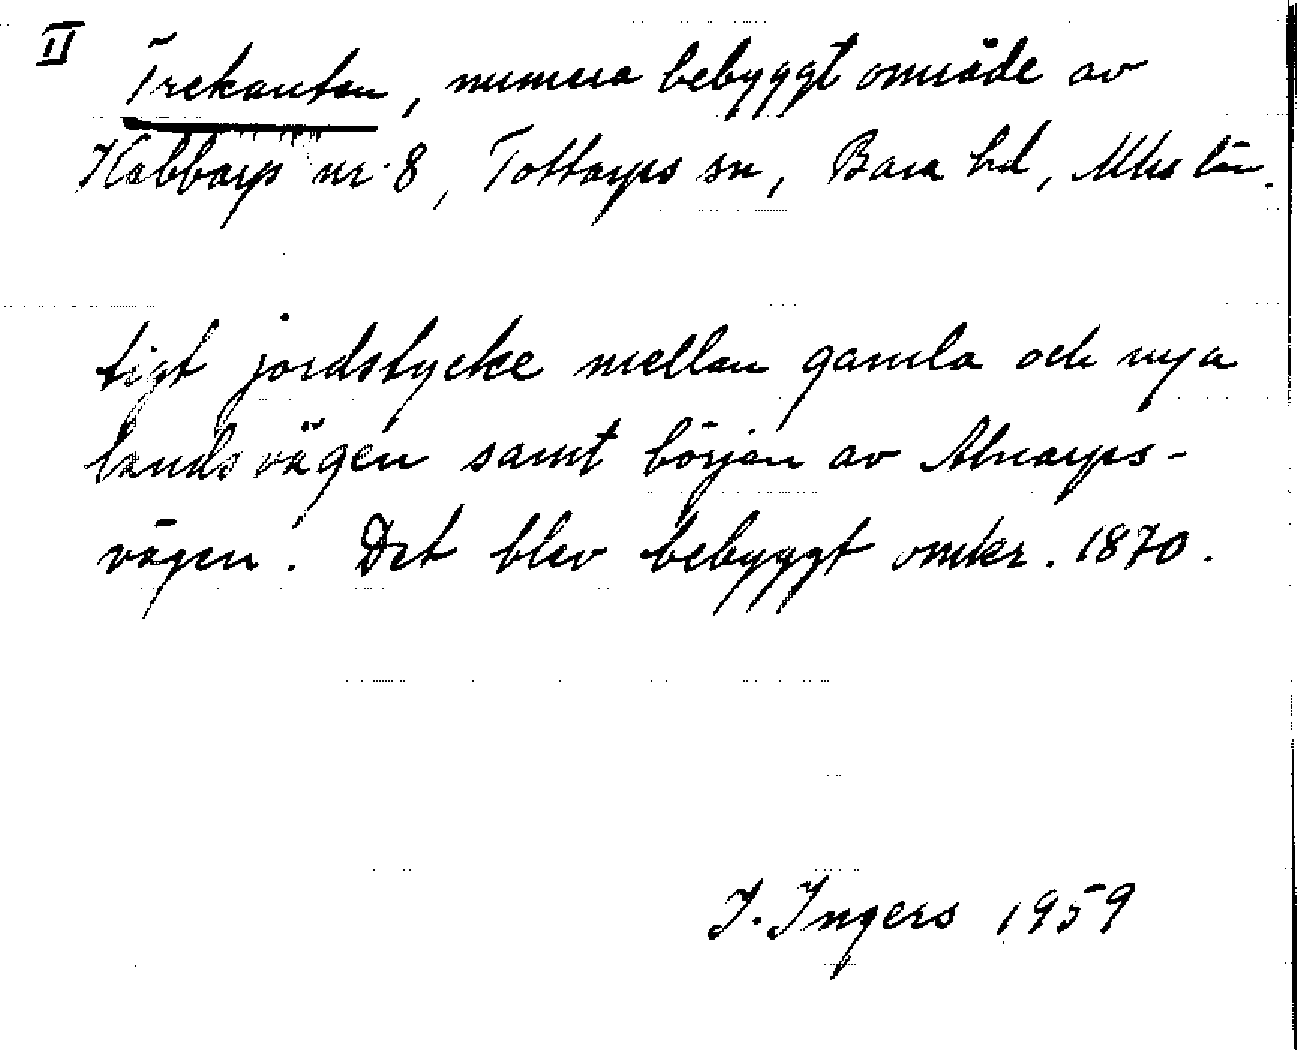 II
Trekanten, numera bebyggt område av
Kabbarp nr 8, Tottarps sn, Bara hd, Mhs län.
tigt jordstycke mellan gamla och nya
landsvägen samt början av Alnarps-
vägen. Det blev bebyggt omkr. 1870.
I. Ingers 1959